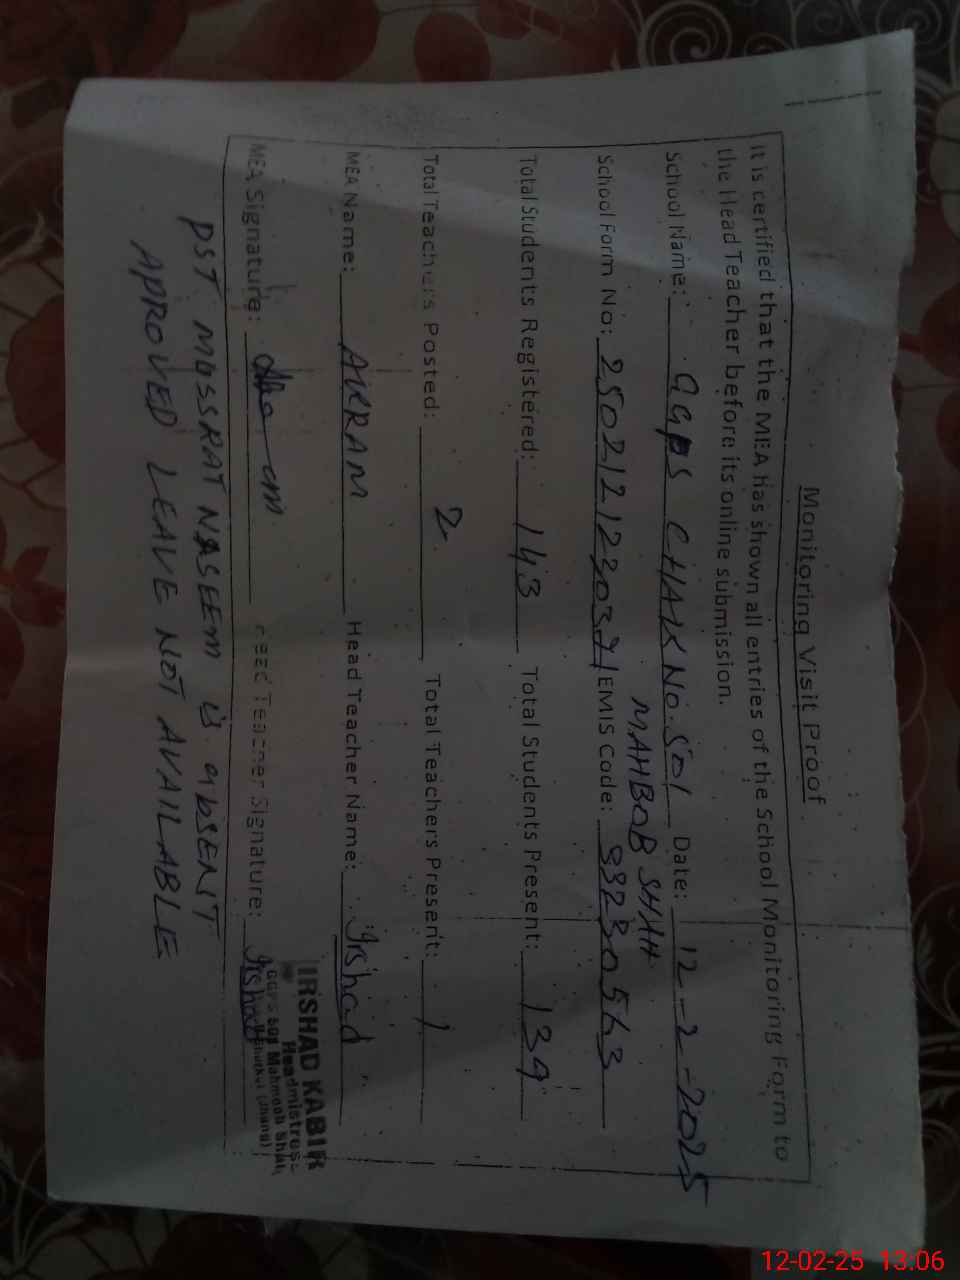 Monitoring Visit Proof
It is certified that the MEA has shown all entries of the School Monitoring Form to
the Head Teacher before its online submission.
School Name: GGPS CHAK No. 501 Date: 12-2-2025
MAHBOB SHAH
School Form No: EMIS Code:
Total Students Registered: 143 Total Students Present: 139
Total Teachers Posted: 2 Total Teachers Present: 1
MEA Name: AKRAM Head Teacher Name: Irshad
MEA Signature: Head Teacher Signature: Irshad
IRSHAD KABIR
Headmistress
GGPS 501 Mahmoob Shah
(Jhang)
PST MUSSRAT NASEEM is absENT
APPROVED LEAVE NOT AVAILABLE
12-02-25 13:06